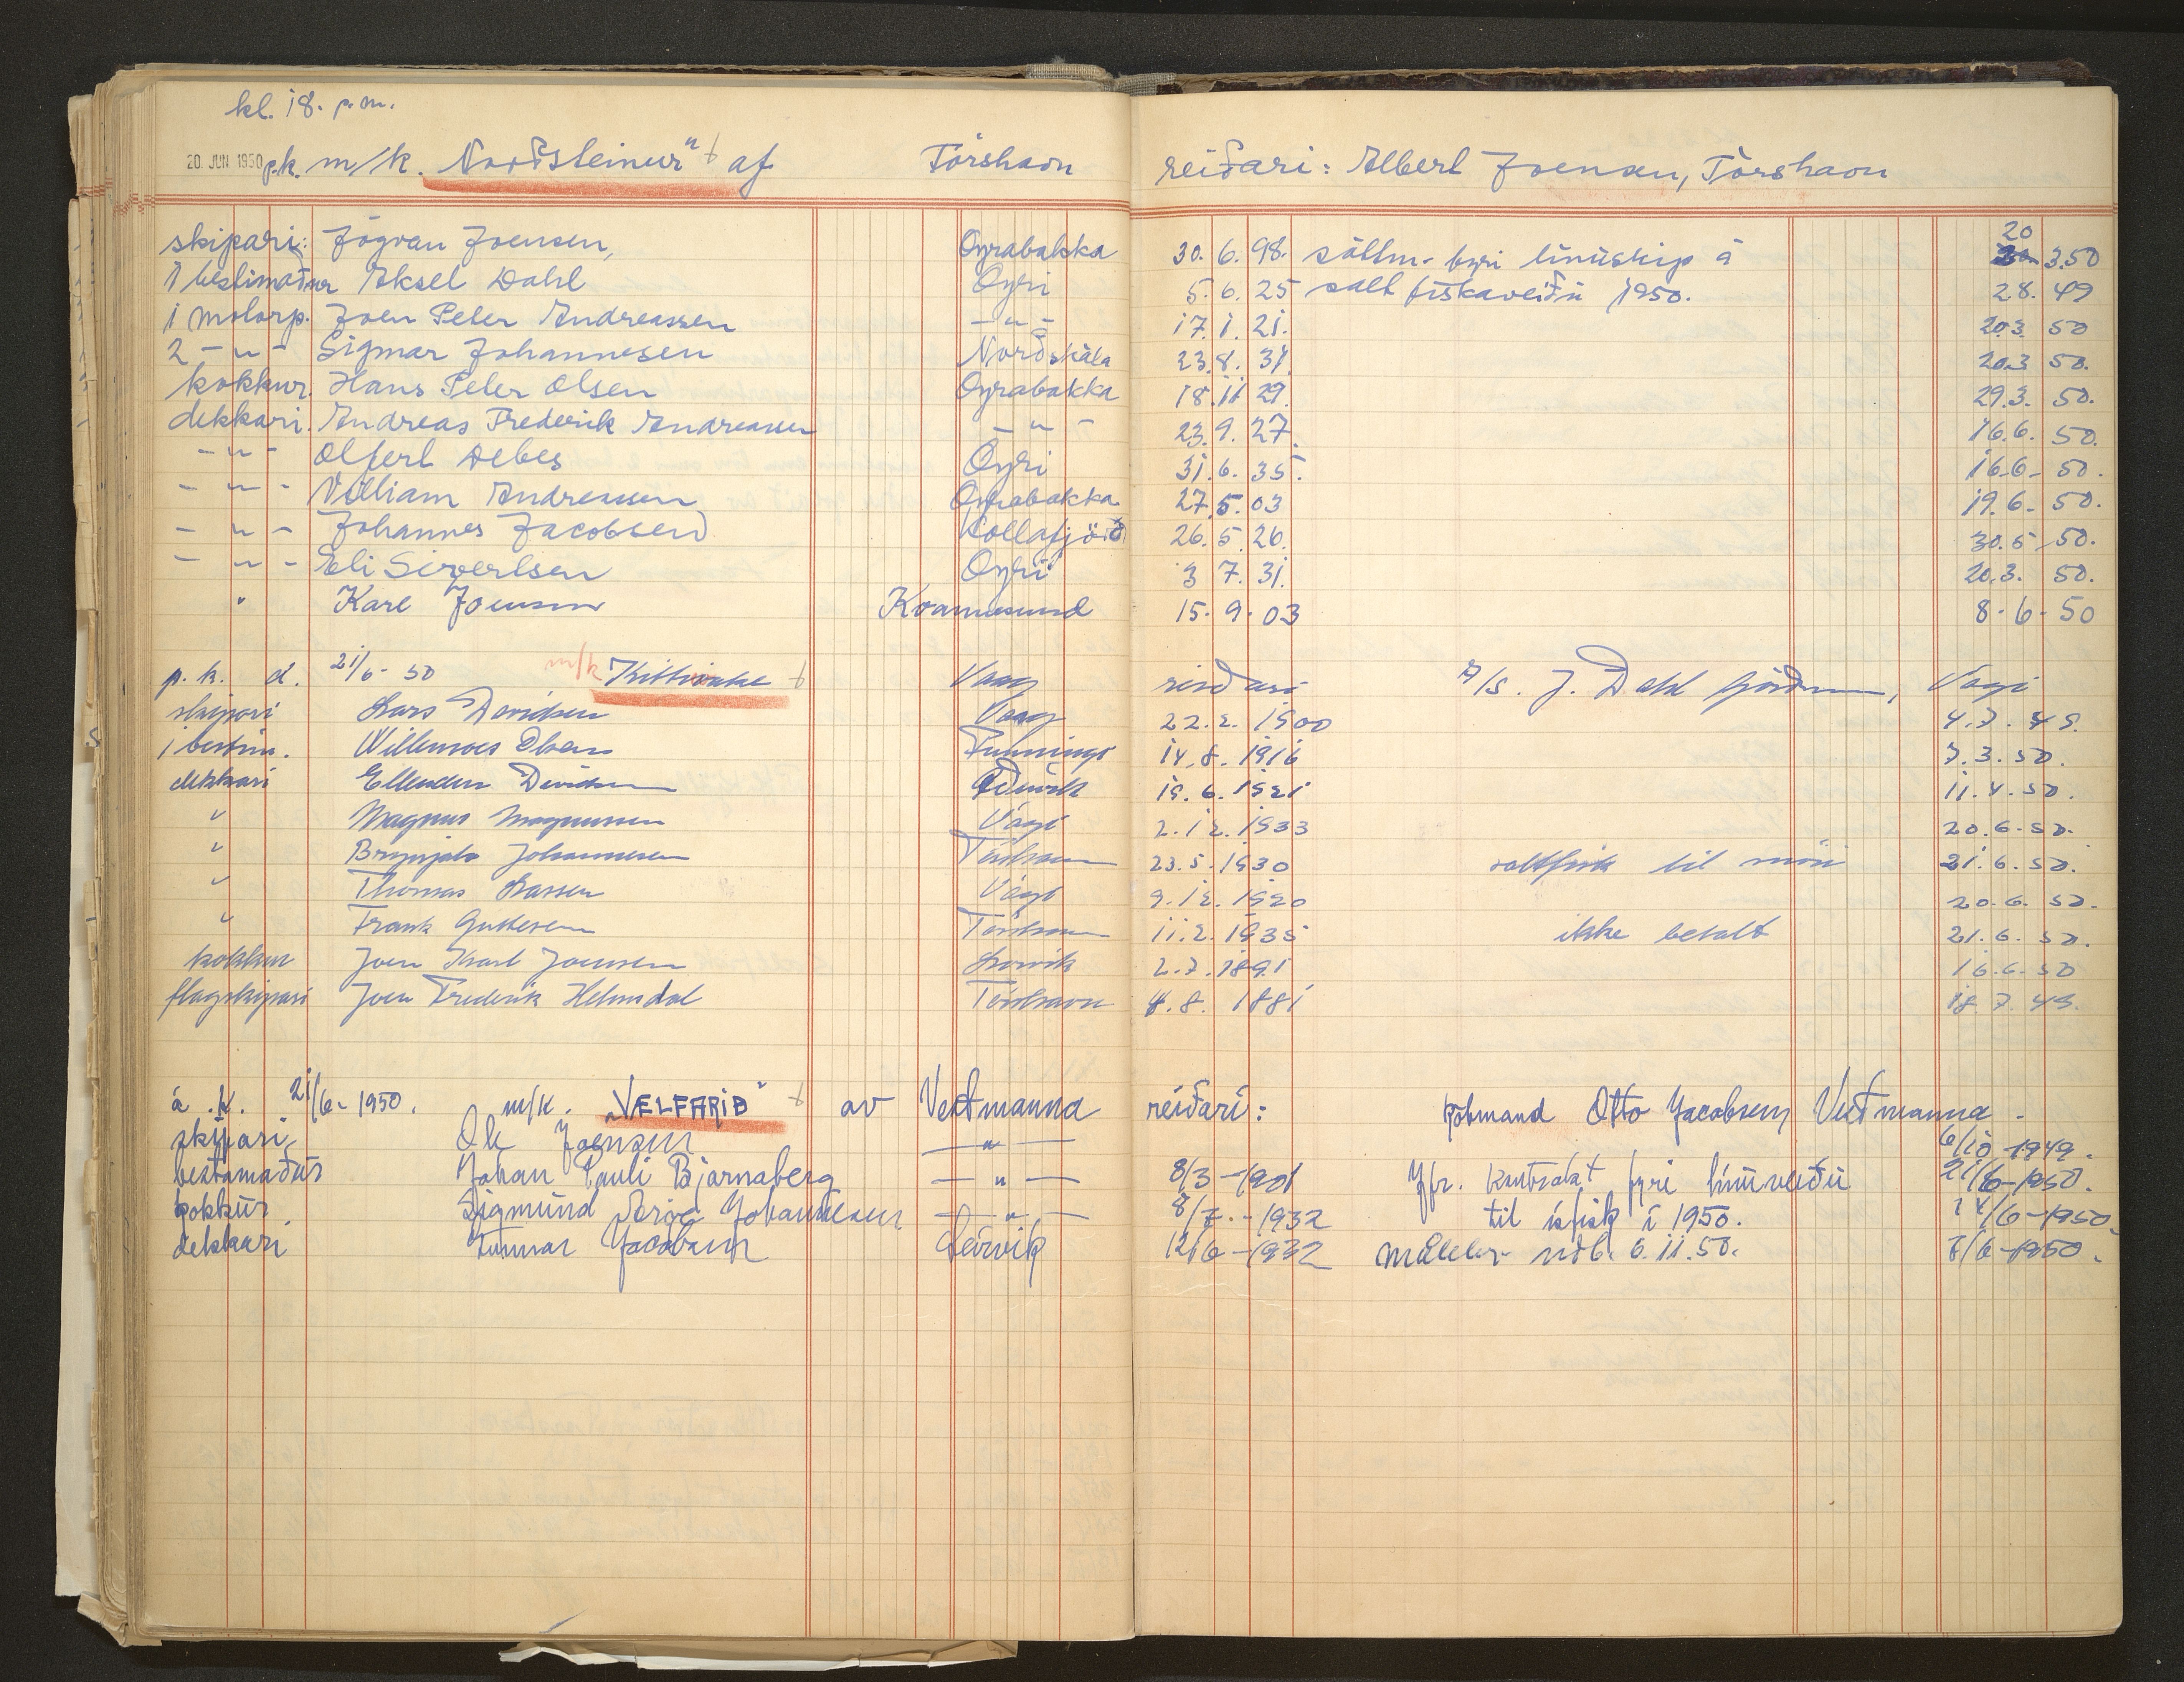 kl. 18. p.m.
20. JUN 1950 p.k. m/k. „Norðsteinur“ af Tórshavn reiðari: Albert Joensen, Tórshavn
skipari: Jógvan Joensen, Oyrabakka 30. 6. 98. sáttm. fyri línuskip á 20 3.50
1 bestimaður Aksel Dahl Oyri 5. 6. 25 salt fiskaveiðu 1950. 28. 49
1 motorp. Joen Peter Andreassen - " - 17. 1. 21. 20.3. 50
2 - " - Sigmar Johannesen Norðskála 23. 8. 31. 20.3 50.
kokkur. Hans Peter Olsen Oyrabakka 18. 11 29. 29.3. 50.
dekkari. Andreas Frederik Andreassen - " - 23. 9. 27. 16.6. 50.
- " - Olfert Debes Oyri 31. 6. 35. 16.6- 50.
- " - William Andreassen Oyrabakka 27. 5. 03 19.6- 50.
- " - Johannes Jacobsen Kollafjörð 26. 5. 26. 30.5 50.
- " - Eli Sivertsen Oyri 3 7. 31. 20.3. 50.
" Karl Joensen Kvannesund 15. 9. 03 8-6-50
p. k. d. 21/6- 50 m/k Kittiwake Vaag reiðari A/S. J. Dahl, Vági
skipari Lars Davidsen Vaag 22. 2. 1900 4. 7. 49.
1 bestim. Willemoes Olsen Funnings 14. 8. 1916 7. 3. 50.
dekkari Ellendur Davidsen 15. 6. 1921 11. 4. 50.
" Magnus Magnussen Vági 2. 12. 1933 20. 6. 50.
" Brynjalv Johannesen Tórshavn 23. 5. 1930 saltfisk til 21. 6. 50.
" Thomas Lassen Vági 9. 12. 1920 20. 6. 50.
" Frank Guttesen Tórshavn 11. 2. 1935 ikke betalt 21. 6. 50.
kokkur Joen Karl Joensen Lorvík 2. 7. 1891 16. 6. 50
flagskipari Joen Frederik Helmsdal Tórshavn 4. 8. 1881 18. 7. 49.
á .k. 21/6- 1950. m/k. „VÆLFARIÐ“ av Vestmanna reiðari: Købmand Otto Jacobsen, Vestmanna -
skipari, Ole Joensen — " — 6/10-1949.
bestamaður Johan Pauli Bjarnaberg — " — 8/3 -1901 Yfr. Kontrakt fyri línuveiðu 21/6-1950.
kokkur Sigmund Johannesen — " — 8/7.- 1932 til ísfisk í 1950. 14/6-1950
dekkari Gunnar Jacobsen Leirvik 12/6 -1932 6.11.50. 7/6-1950.